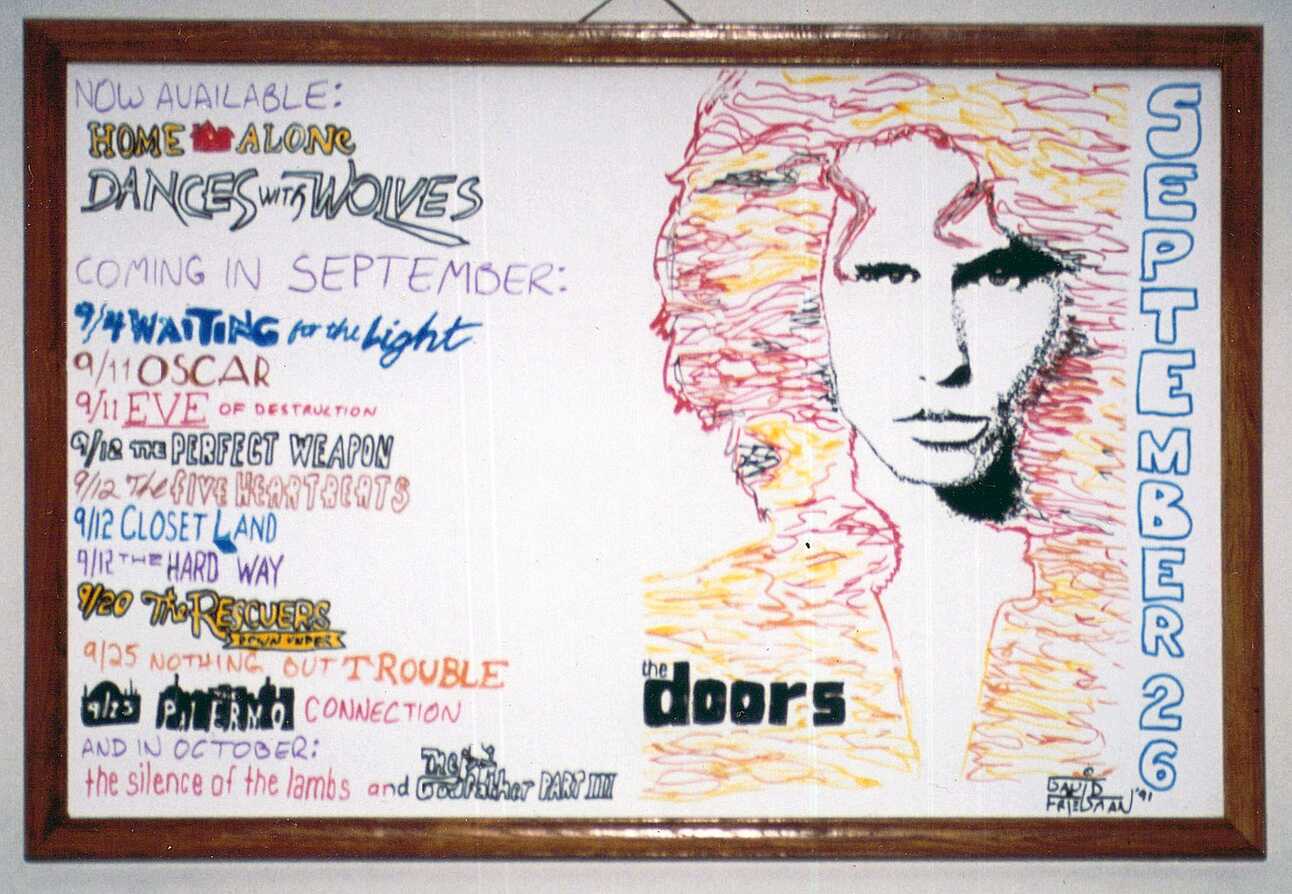 NOW AVAILABLE:
HOME ALONe
DANCES WITH WOLVES
COMING IN SEPTEMBER:
9/4 WAITING for the Light
9/11 OSCAR
9/11 EVE OF DESTRUCTION
9/12 THE PERFECT WEAPON
9/12 The FIVE HEARTBEATS
9/12 CLOSET LAND
9/12 THE HARD WAY
9/20 The RESCUERS
DOWN UNDER
9/25 NOTHING BUT TROUBLE
9/25 PALERMO CONNECTION
AND IN OCTOBER:
the silence of the lambs and The Godfather PART III
the
doors
SEPTEMBER 26
© DAVID
FRIEDMAN '91